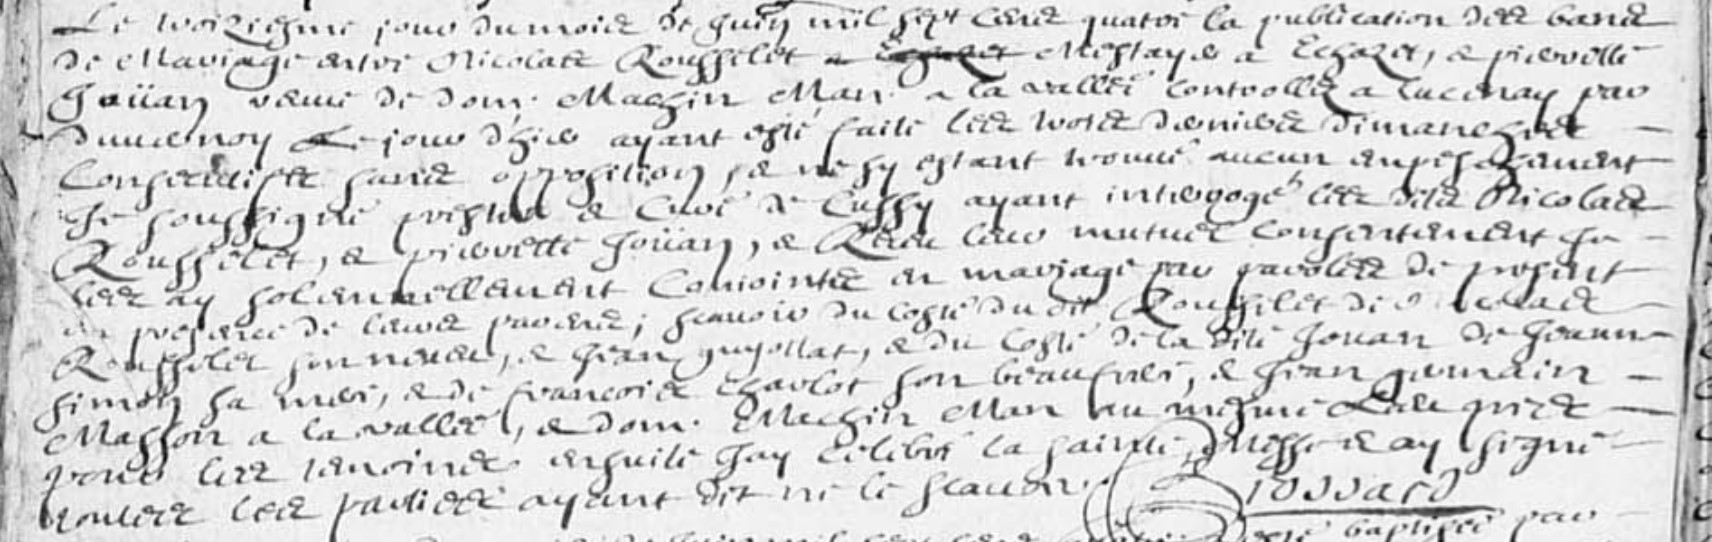 Le troiziesme jour du mois de juin mil sept cens quatre la publication des bans
de Mariage entre Nicolas Rousselet a Mestayer a Echazet, & pierrette
Joüan veuve de dom. Machin Man a la vallée controolle a Lucenay par
duvernoy Le jour d'hier ayant esté faite les trois derniers dimanches
Consecutifs sans opposition, & ne sy estant trouvé aucun enpeschement
Je soussigné prestre & Curé de Cussy ayant interrogé les dits Nicolas
Rousselet, & pierrette Joüan, & Receu leur mutuel Consentement Je
les ay solennellement Conjointes en mariage par parolles de present
en presence de leurs parens; scavoir du costé du dit Rousselet de
Rousselet son neveu, & Jean guyollat, & du costé de la dite Joüan de Jeanne
simon sa mere, & de francois charlot son beaufrere, & Jean germain
Masson a la vallée, & dom. Machin Man au mesme Lieu pris
pour les temoins ensuite Jay celebré la sainte Messe & ay signé
toutes les parties ayant dit ne le scavoir.
baptisée par